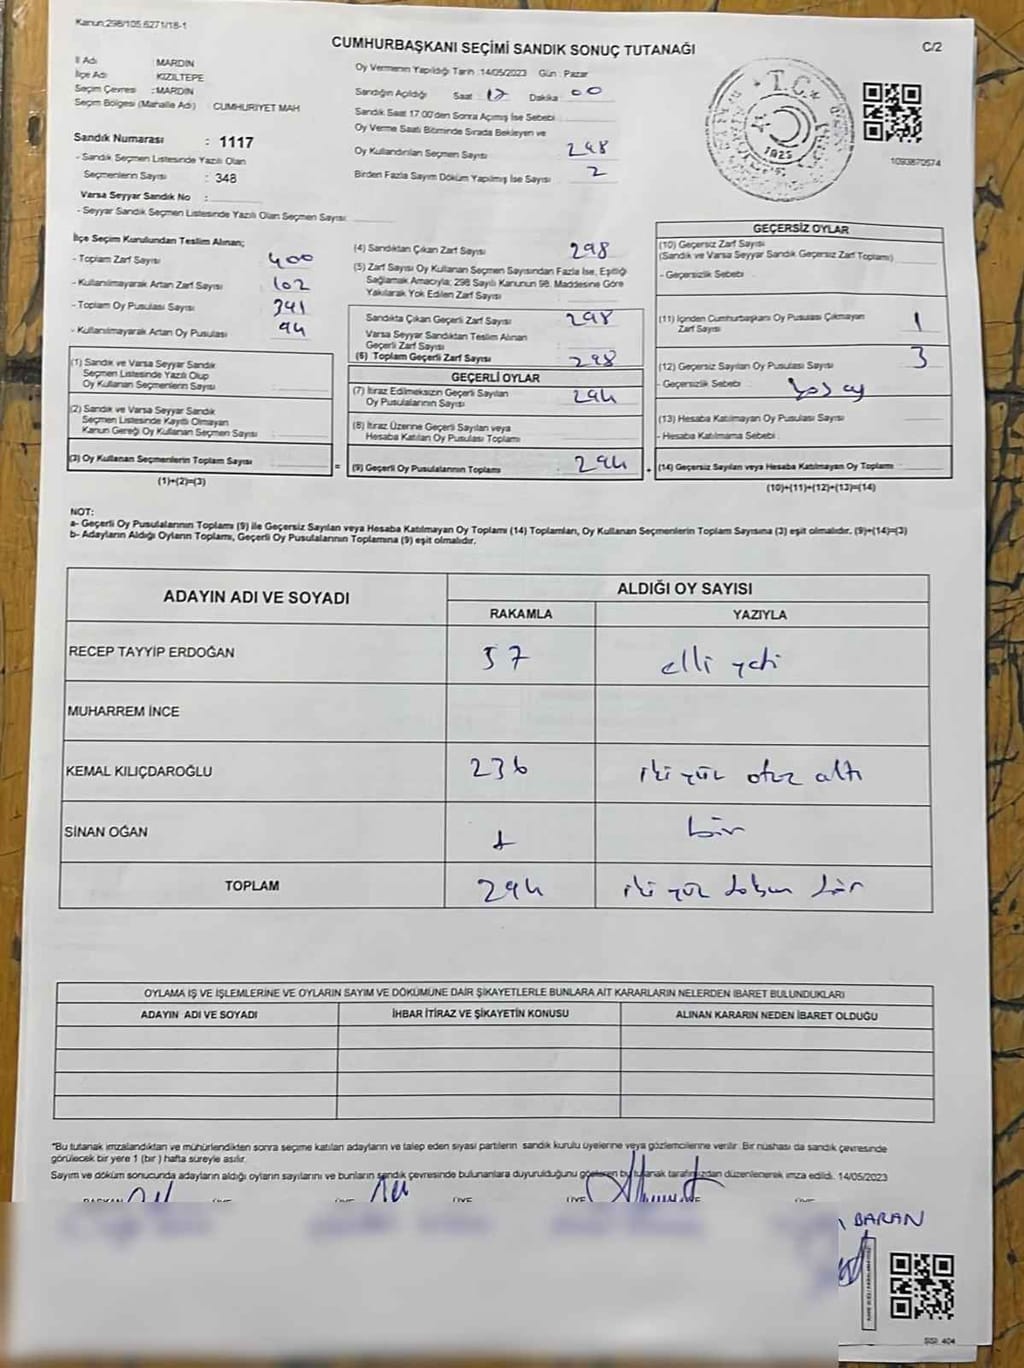 Kanun:298/105.6271/18-1
CUMHURBAŞKANI SEÇİMİ SANDIK SONUÇ TUTANAĞI
C/2
İl Adı : MARDİN
İlçe Adı : KIZILTEPE
Seçim Çevresi : MARDİN
Seçim Bölgesi (Mahalle Adı) CUMHURİYET MAH
Sandık Numarası : 1117
- Sandık Seçmen Listesinde Yazılı Olan
Seçmenlerin Sayısı : 348
Varsa Seyyar Sandık No :
- Seyyar Sandık Seçmen Listesinde Yazılı Olan Seçmen Sayısı:
Oy Vermenin Yapıldığı Tarih :14/05/2023 Gün : Pazar
Sandığın Açıldığı Saat : 17 Dakika : 00
Sandık Saat 17.00'den Sonra Açımış İse Sebebi :
Oy Verme Saati Bitiminde Sırada Bekleyen ve
Oy Kullandırılan Seçmen Sayısı 298
Birden Fazla Sayım Döküm Yapılmış İse Sayısı 2
T.C.
1923
1093870574
İlçe Seçim Kurulundan Teslim Alınan;
- Toplam Zarf Sayısı 400
- Kullanılmayarak Artan Zarf Sayısı 102
- Toplam Oy Pusulası Sayısı 391
- Kullanılmayarak Artan Oy Pusulası 94
(1) Sandık ve Varsa Seyyar Sandık
Seçmen Listesinde Yazılı Olup
Oy Kullanan Seçmenlerin Sayısı
(2) Sandık ve Varsa Seyyar Sandık
Seçmen Listesinde Kayıtlı Olmayan
Kanun Gereği Oy Kullanan Seçmen Sayısı
(3) Oy Kullanan Seçmenlerin Toplam Sayısı
(1)+(2)=(3)
(4) Sandıktan Çıkan Zarf Sayısı 298
(5) Zarf Sayısı Oy Kullanan Seçmen Sayısından Fazla İse, Eşitliği
Sağlamak Amacıyla; 298 Sayılı Kanunun 98. Maddesine Göre
Yakılarak Yok Edilen Zarf Sayısı
Sandıkta Çıkan Geçerli Zarf Sayısı 298
Varsa Seyyar Sandıktan Teslim Alınan
Geçerli Zarf Sayısı
(6) Toplam Geçerli Zarf Sayısı 298
GEÇERLİ OYLAR
(7) İtiraz Edilmeksizin Geçerli Sayılan
Oy Pusulalarının Sayısı 294
(8) İtiraz Üzerine Geçerli Sayılan veya
Hesaba Katılan Oy Pusulası Toplamı
= (9) Geçerli Oy Pusulalarının Toplamı 294 +
GEÇERSİZ OYLAR
(10) Geçersiz Zarf Sayısı
(Sandık ve Varsa Seyyar Sandık Geçersiz Zarf Toplamı)
- Geçersizlik Sebebi :
(11) İçinden Cumhurbaşkanı Oy Pusulası Çıkmayan
Zarf Sayısı 1
(12) Geçersiz Sayılan Oy Pusulası Sayısı 3
- Geçersizlik Sebebi boş oy
(13) Hesaba Katılmayan Oy Pusulası Sayısı
- Hesaba Katılmama Sebebi :
(14) Geçersiz Sayılan veya Hesaba Katılmayan Oy Toplamı
(10)+(11)+(12)+(13)=(14)
NOT:
a- Geçerli Oy Pusulalarının Toplamı (9) ile Geçersiz Sayılan veya Hesaba Katılmayan Oy Toplamı (14) Toplamları, Oy Kullanan Seçmenlerin Toplam Sayısına (3) eşit olmalıdır. (9)+(14)=(3)
b- Adayların Aldığı Oyların Toplamı, Geçerli Oy Pusulalarının Toplamına (9) eşit olmalıdır.
ADAYIN ADI VE SOYADI
ALDIĞI OY SAYISI
RAKAMLA YAZIYLA
RECEP TAYYİP ERDOĞAN 57 elli yedi
MUHARREM İNCE
KEMAL KILIÇDAROĞLU 236 iki yüz otuz altı
SİNAN OĞAN 1 bir
TOPLAM 294 iki yüz doksan dör
OYLAMA İŞ VE İŞLEMLERİNE VE OYLARIN SAYIM VE DÖKÜMÜNE DAİR ŞİKAYETLERLE BUNLARA AİT KARARLARIN NELERDEN İBARET BULUNDUKLARI
ADAYIN ADI VE SOYADI İHBAR İTİRAZ VE ŞİKAYETİN KONUSU ALINAN KARARIN NEDEN İBARET OLDUĞU
*Bu tutanak imzalandıktan ve mühürlendikten sonra seçime katılan adayların ve talep eden siyasi partilerin sandık kurulu üyelerine veya gözlemcilerine verilir. Bir nüshası da sandık çevresinde
görülecek bir yere 1 (bir ) hafta süreyle asılır.
Sayım ve döküm sonucunda adayların aldığı oyların sayılarını ve bunların sandık çevresinde bulunanlara duyurulduğunu gösteren bu tutanak tarafımızdan düzenlenerek imza edildi. 14/05/2023
BAŞKAN ÜYE ÜYE ÜYE ÜYE ÜYE
BARAN
SSI: 404